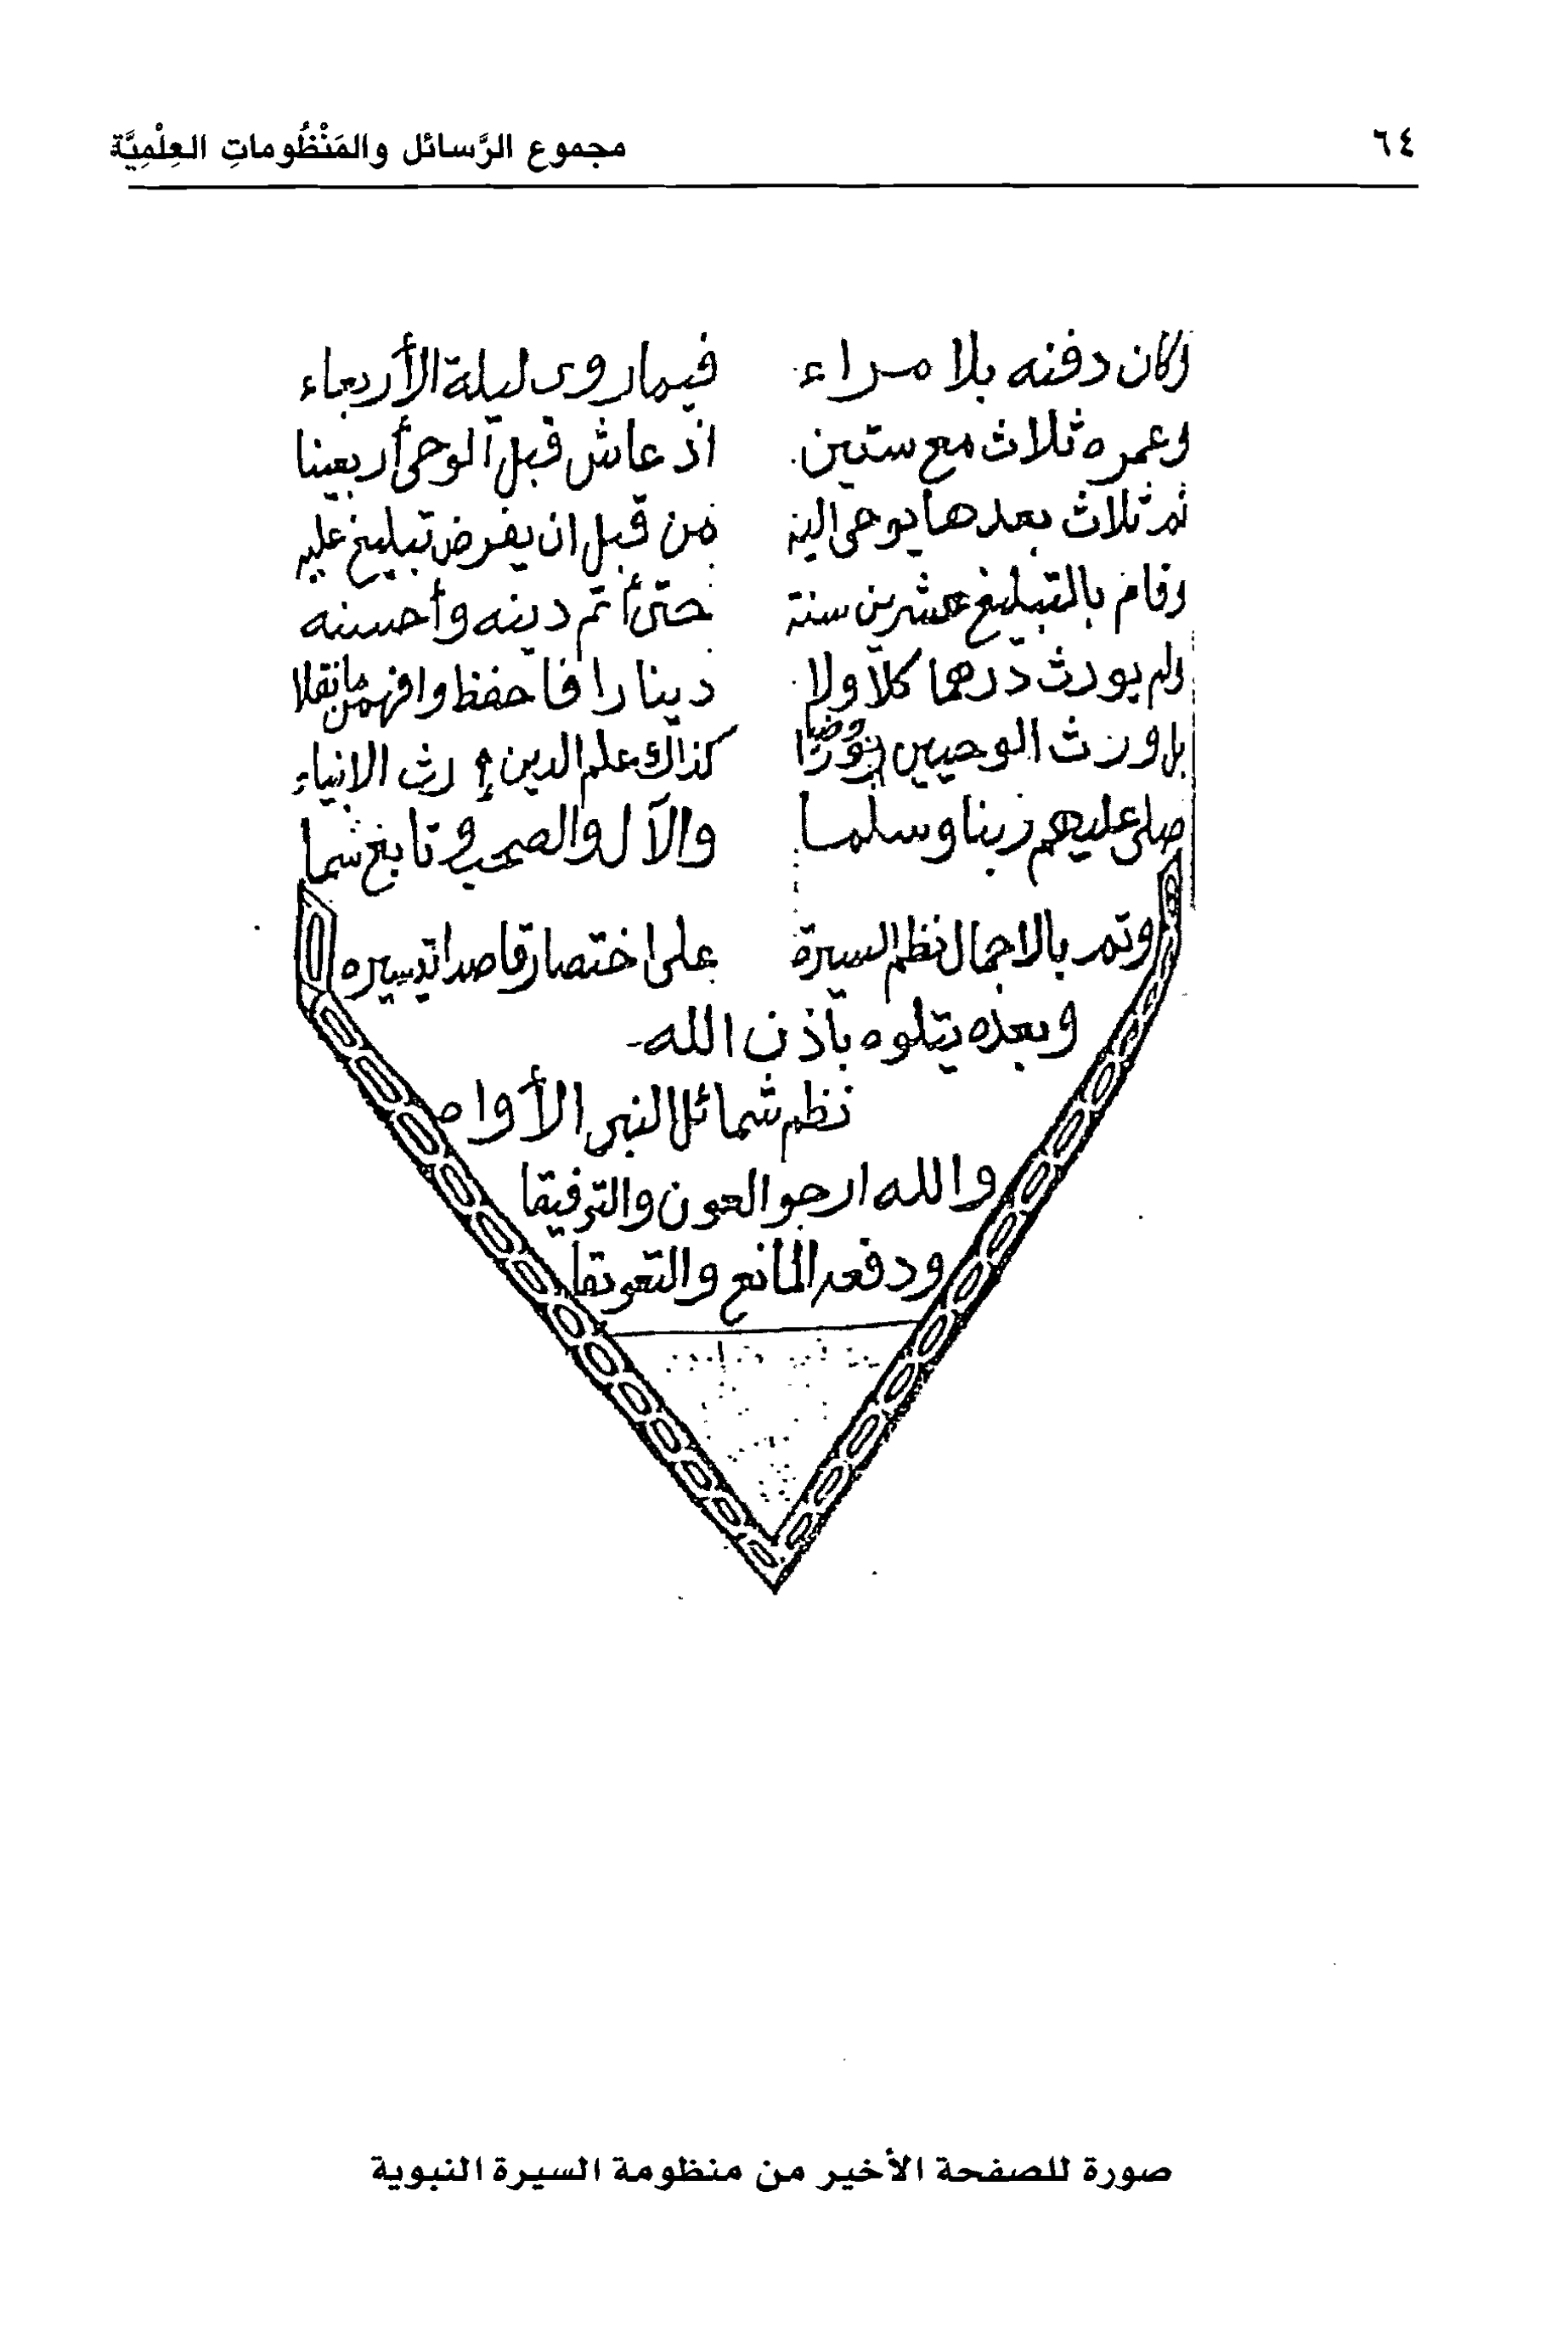 ٦٤ مجموع الرَّسائل والمَنْظُوماتِ العِلْمِيَّة
وكان دفنه بلا مراء فيما روى ليلة الأربعاء
وعمره ثلاث مع ستين اذ عاش قبل الوحي أربعينا
ثم ثلاث بعدها يوحى اليه من قبل ان يفرض تبليغ عليه
وقام بالتبليغ عشرين سنة حتى أتم دينه وأحسنه
ولم يورث درهما كلا ولا دينارا فاحفظ وافهمن ما نقلا
بل ورث الوحيين كذاك علم الدين إرث الانبياء
صلى عليهم ربنا وسلما والآل والصحب وتابع سما
وتم بالاجمال نظم السيرة على اختصار قاصدا تيسيره
وبعده يتلوه بأذن الله
نظم شمائل النبي الأواه
والله ارجو العون والتوفيقا
ودفعه المانع والتعويقا
صورة للصفحة الأخير من منظومة السيرة النبوية